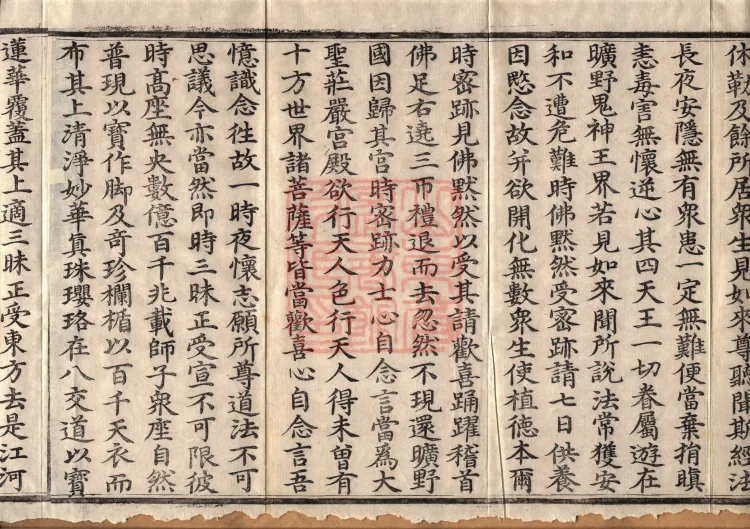 休勒及餘所居眾生見如來尊聽聞斯經法
長夜安隱無有眾患一定無難便當棄捐瞋
恚毒害無懷逆心其四天王一切眷屬遊在
曠野鬼神王界若見如來聞所說法常獲安
和不遭危難時佛默然受密跡請七日供養
因愍念故并欲開化無數眾生使植德本爾
時密跡見佛默然以受其請歡喜踊躍稽首
佛足右遶三帀禮退而去忽然不現還曠野
國因歸其宮時密跡力士心自念言當為大
聖莊嚴宮殿欲行天人色行天人得未曾有
十方世界諸菩薩等皆當歡喜心自念言吾
憶識念往故一時夜懷志願所尊道法不可
思議今亦當然即時三昧正受宣不可限彼
時高座無央數億百千兆載師子眾座自然
普現以寶作腳及奇珍欄楯以百千天衣而
布其上清淨妙華真珠瓔珞在八交道以寶
蓮華覆蓋其上適三昧正受東方去是江河